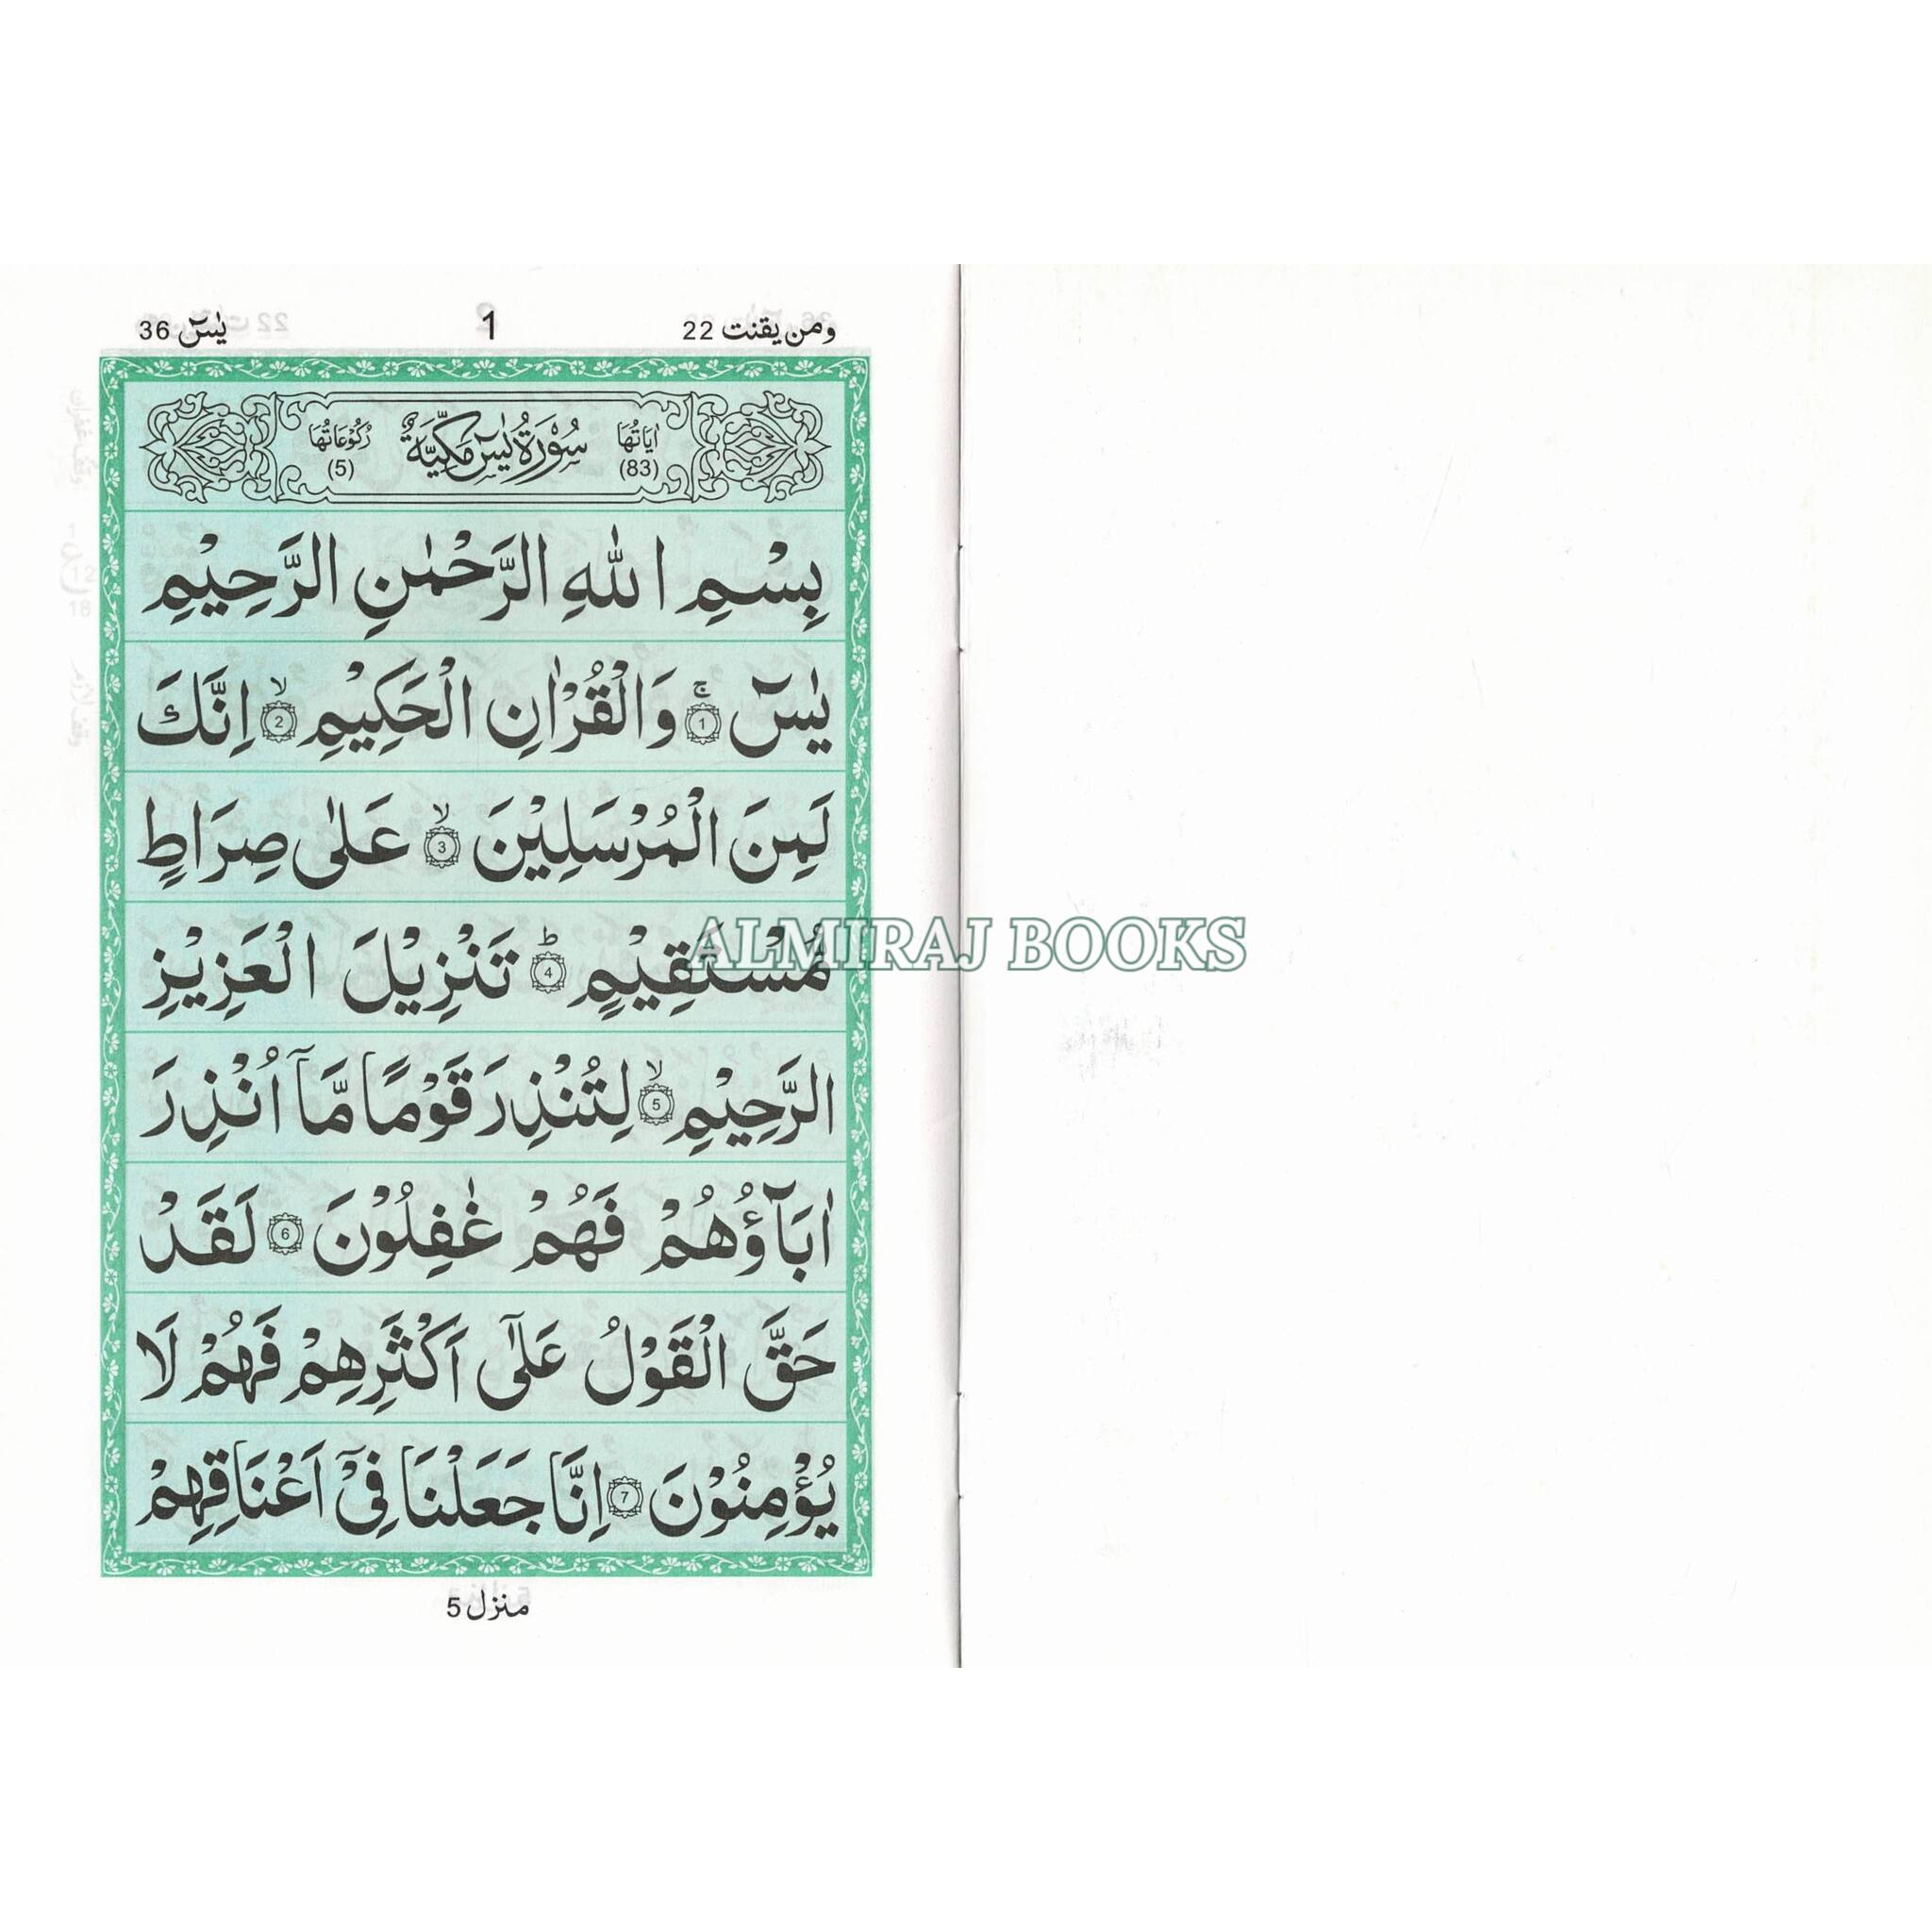 ومن يقنت 22
1
يٰسٓ 36
اٰيَاتُهَا (83)
سُوْرَةُ يٰسٓ مَكِّيَّةٌ
رُكُوْعَاتُهَا (5)
بِسْمِ اللّٰهِ الرَّحْمٰنِ الرَّحِيْمِ
يٰسٓ ۚ 1 وَالْقُرْاٰنِ الْحَكِيْمِ ۙ 2 اِنَّكَ
لَمِنَ الْمُرْسَلِيْنَ ۙ 3 عَلٰى صِرَاطٍ
مُّسْتَقِيْمٍ ؕ 4 تَنْزِيْلَ الْعَزِيْزِ
الرَّحِيْمِ ۙ 5 لِتُنْذِرَ قَوْمًا مَّاۤ اُنْذِرَ
اٰبَآؤُهُمْ فَهُمْ غٰفِلُوْنَ 6 لَقَدْ
حَقَّ الْقَوْلُ عَلٰۤى اَكْثَرِهِمْ فَهُمْ لَا
يُؤْمِنُوْنَ 7 اِنَّا جَعَلْنَا فِيْۤ اَعْنَاقِهِمْ
منزل 5
ALMIRAJ BOOKS